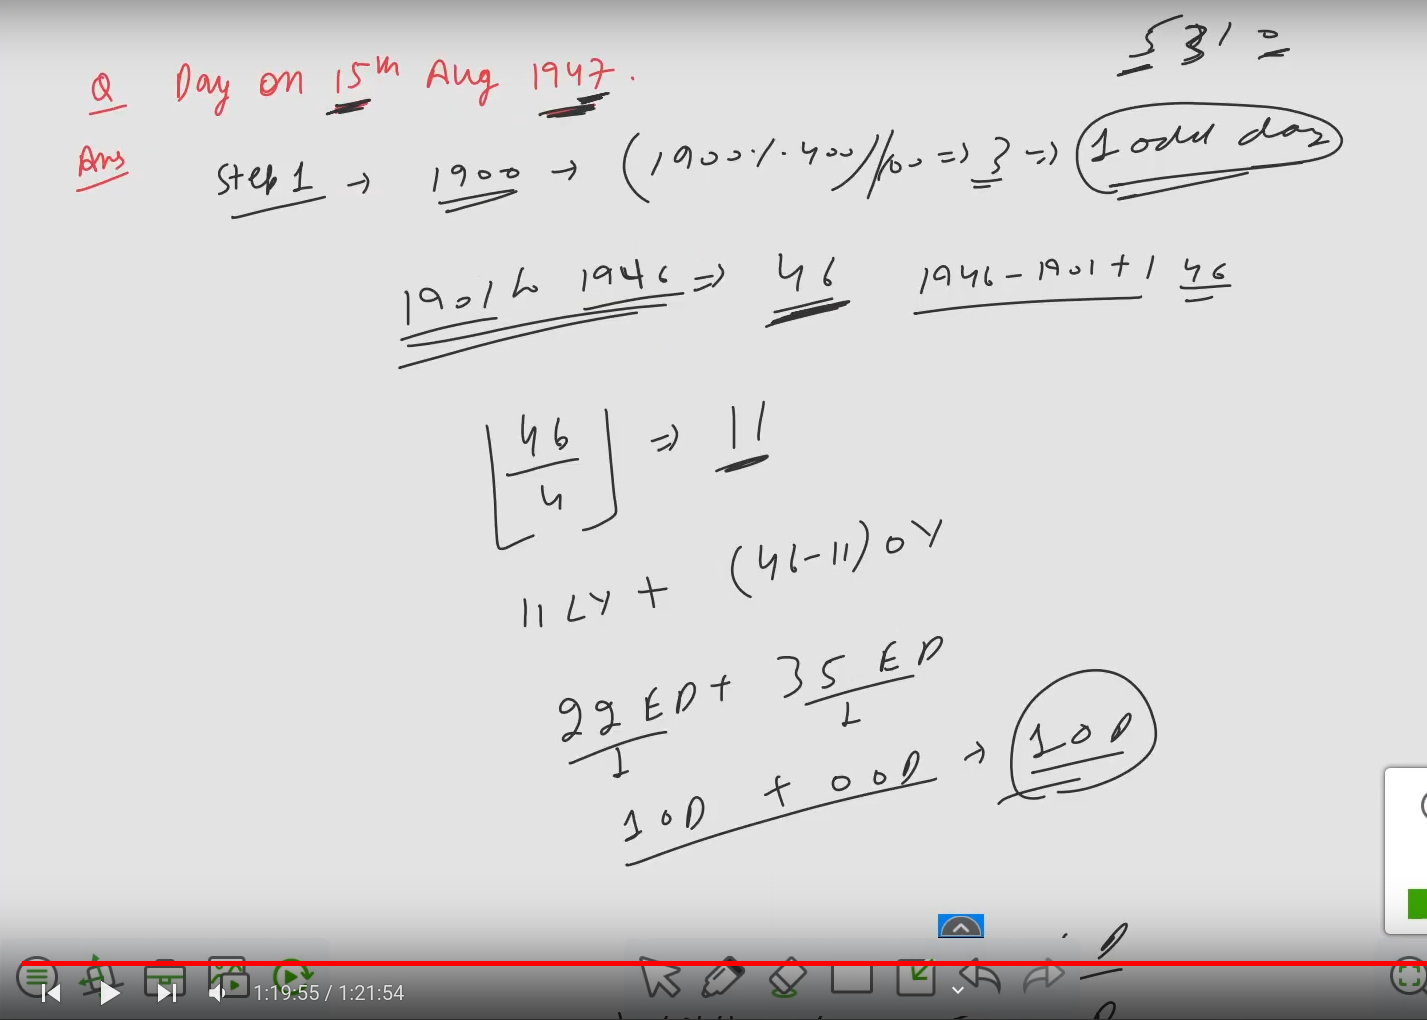 5 3 1 0
Q Day on 15th Aug 1947.
Ans Step 1 → 1900 → (1900 % 400)//100 => 3 => 1 odd day
1901 to 1946 => 46 1946 - 1901 + 1 46
⌊46/4⌋ => 11
11 LY + (46-11) OY
22 ED + 35 ED
1 1
1 OD + 0 OD → 1 OD
1:19:55 / 1:21:54